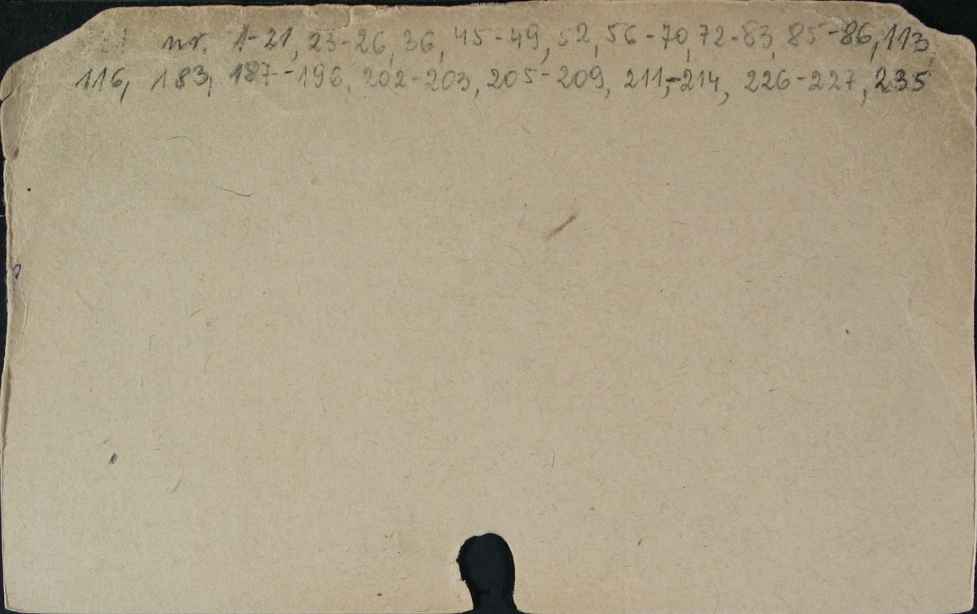 nr. 1-21, 23-26, 36, 45-49, 52, 56-70, 72-83, 85-86, 113,
116, 183, 187-196, 202-203, 205-209, 211-214, 226-227, 235